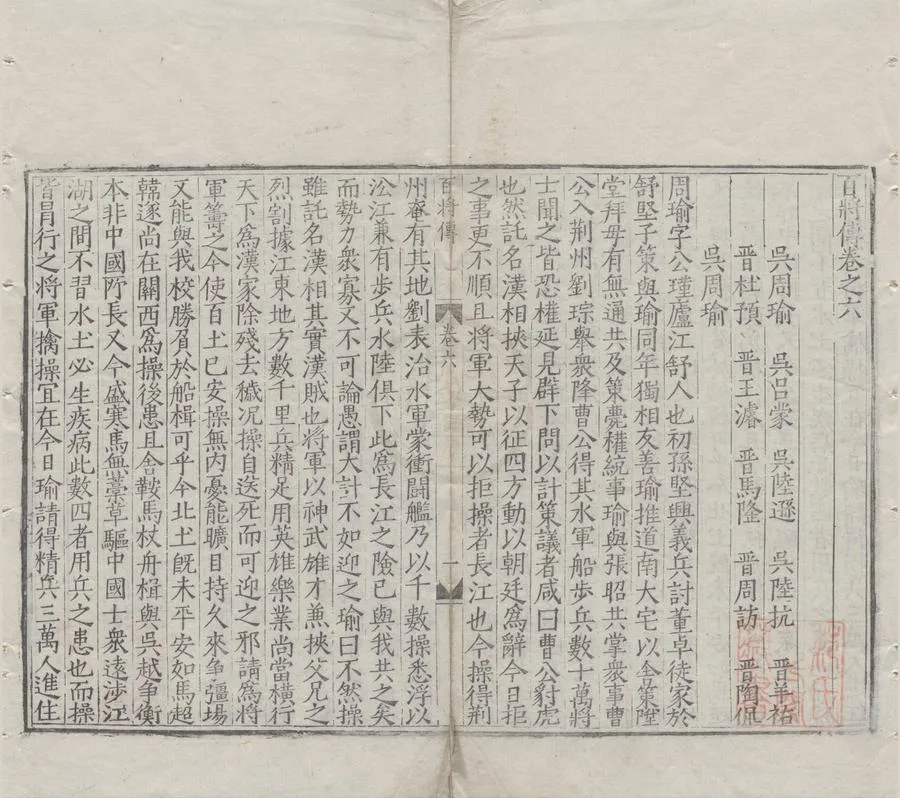 百將傳卷之六
吳周瑜 吳呂蒙 吳陸遜 吳陸抗 晋羊祜
晋杜預 晋王濬 晋馬隆 晋周訪 晋陶侃
吳周瑜
周瑜字公瑾廬江舒人也初孫堅興義兵討董卓徒家於
舒堅子策與瑜同年獨相友善瑜推道南大宅以舎策陞
堂拜母有無通共及策薨權統事瑜與張昭共掌衆事曹
公入荆州劉琮舉衆降曹公得其水軍船步兵數十萬將
士聞之皆恐權延見群下問以計策議者咸曰曹公豺虎
也然託名漢相挾天子以征四方動以朝廷爲辭今日拒
之事更不順且將軍大勢可以拒操者長江也今操得荆
百將傳 卷六 一
州奄有其地劉表治水軍蒙衝鬪艦乃以千數操悉浮以
㳂江兼有步兵水陸俱下此爲長江之險已與我共之矣
而勢力衆寡又不可論愚謂大計不如迎之瑜曰不然操
雖託名漢相其實漢賊也將軍以神武雄才兼挾父兄之
烈割據江東地方數千里兵精足用英雄樂業尚當橫行
天下爲漢家除殘去穢况操自送死而可迎之邪請爲將
軍籌之今使百土已安操無内憂能曠日持久來争彊場
又能與我校勝負於船楫可乎今北土旣未平安如馬超
韓遂尚在關西爲操後患且舎鞍馬杖舟楫與吳越争衡
本非中國所長又今盛寒馬無藁草驅中國士衆遠渉江
湖之間不習水土必生疾病此數四者用兵之患也而操
皆冒行之將軍擒操宜在今日瑜請得精兵三萬人進住